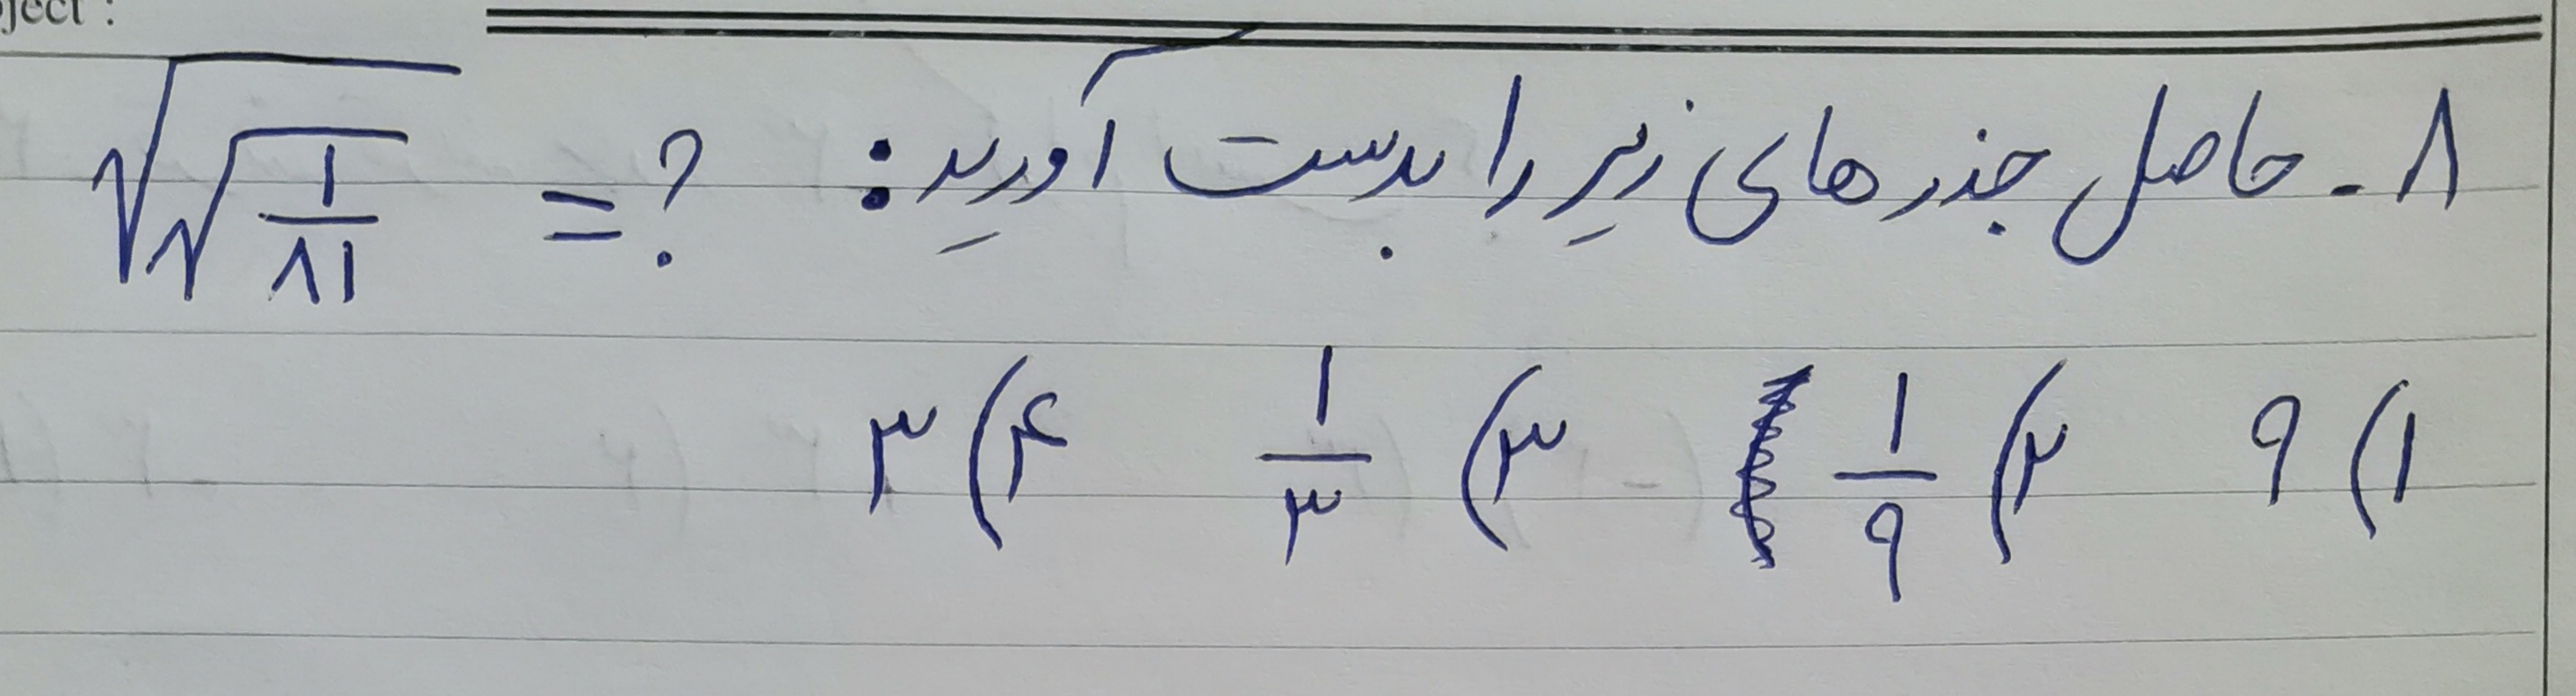 ject :
۸ - حاصل جذرهای زیر را بدست آورید: √√۱/۸۱ = ?
۱) ۹ ۲) ۱/۹ ۳) ۱/۳ ۴) ۳